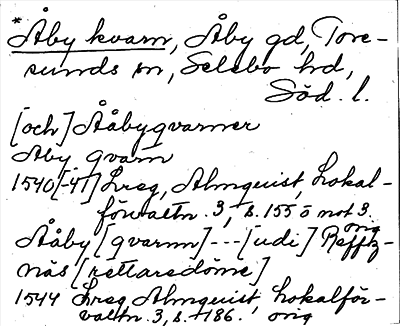 * Åby kvarn, Åby gd, Tore-
sunds sn, Selebo hd,
Söd. l.
[och] Ååbyqvarner
Aby qvarn
1540[-41] Lreg, Almquist, Lokal-
förvaltn. 3, s. 155 o not 3.
orig
Ååby [qvarnn] --- [udi] Reffz-
näs [rettarsdöme]
1544 Lreg Almquist, Lokalför-
valtn. 3, s. 186. orig